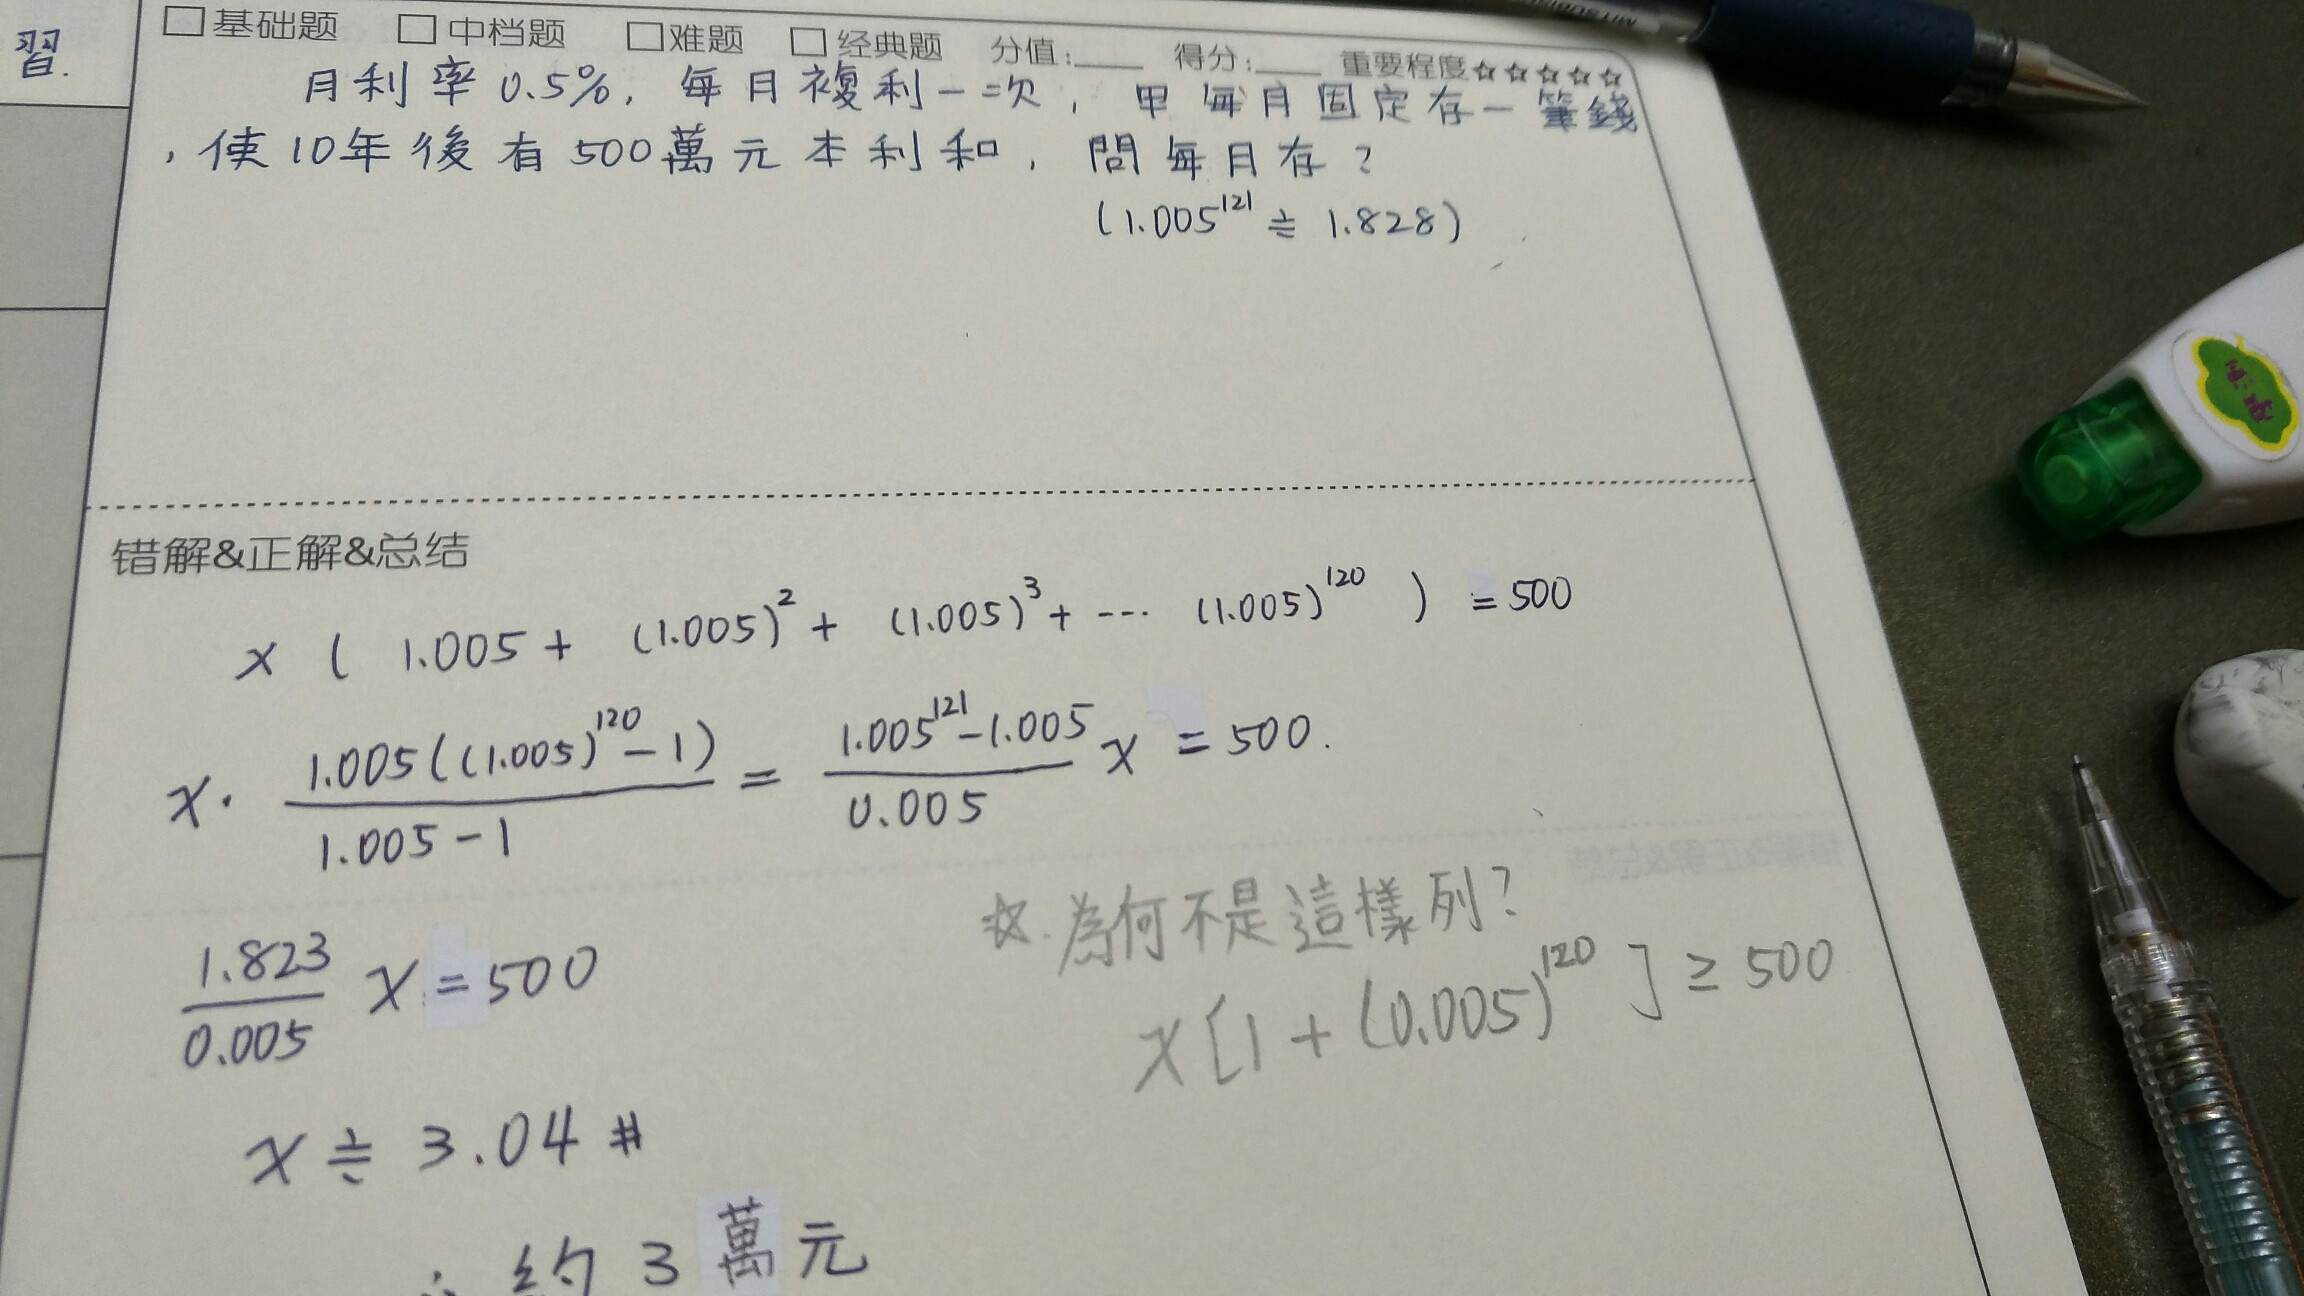 習.
□基础题 □中档题 □难题 □经典题 分值:___ 得分:___ 重要程度☆☆☆☆☆
月利率0.5%, 每月複利一次, 甲每月固定存一筆錢
, 使10年後有500萬元本利和, 問每月存?
(1.005¹²¹ ≑ 1.828)
错解&正解&总结
x ( 1.005 + (1.005)² + (1.005)³ + ... (1.005)¹²⁰ ) = 500
x · 1.005((1.005)¹²⁰ - 1) / 1.005 - 1 = 1.005¹²¹ - 1.005 / 0.005 x = 500.
☆. 為何不是這樣列?
1.823 / 0.005 x = 500
x [1 + (0.005)¹²⁰ ] ≥ 500
x ≑ 3.04 #
∴ 約 3 萬元